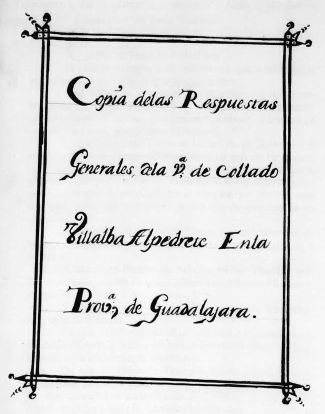 Copia delas Respuestas
Generales, dla v.ª de Collado
Villalba Alpedrete Enla
Prov.ª de Guadalajara.